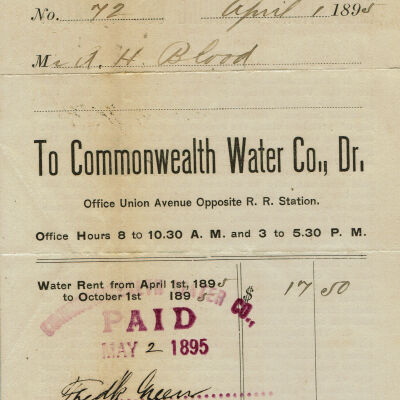 No. 72 April 1, 1895
Mr A. H. Blood
To Commonwealth Water Co., Dr.
Office Union Avenue Opposite R. R. Station.
Office Hours 8 to 10.30 A. M. and 3 to 5.30 P. M.
Water Rent from April 1st, 1895
to October 1st 1895 $ 17 50
COMMONWEALTH WATER CO.,
PAID
MAY 2 1895
Fredk. Greene